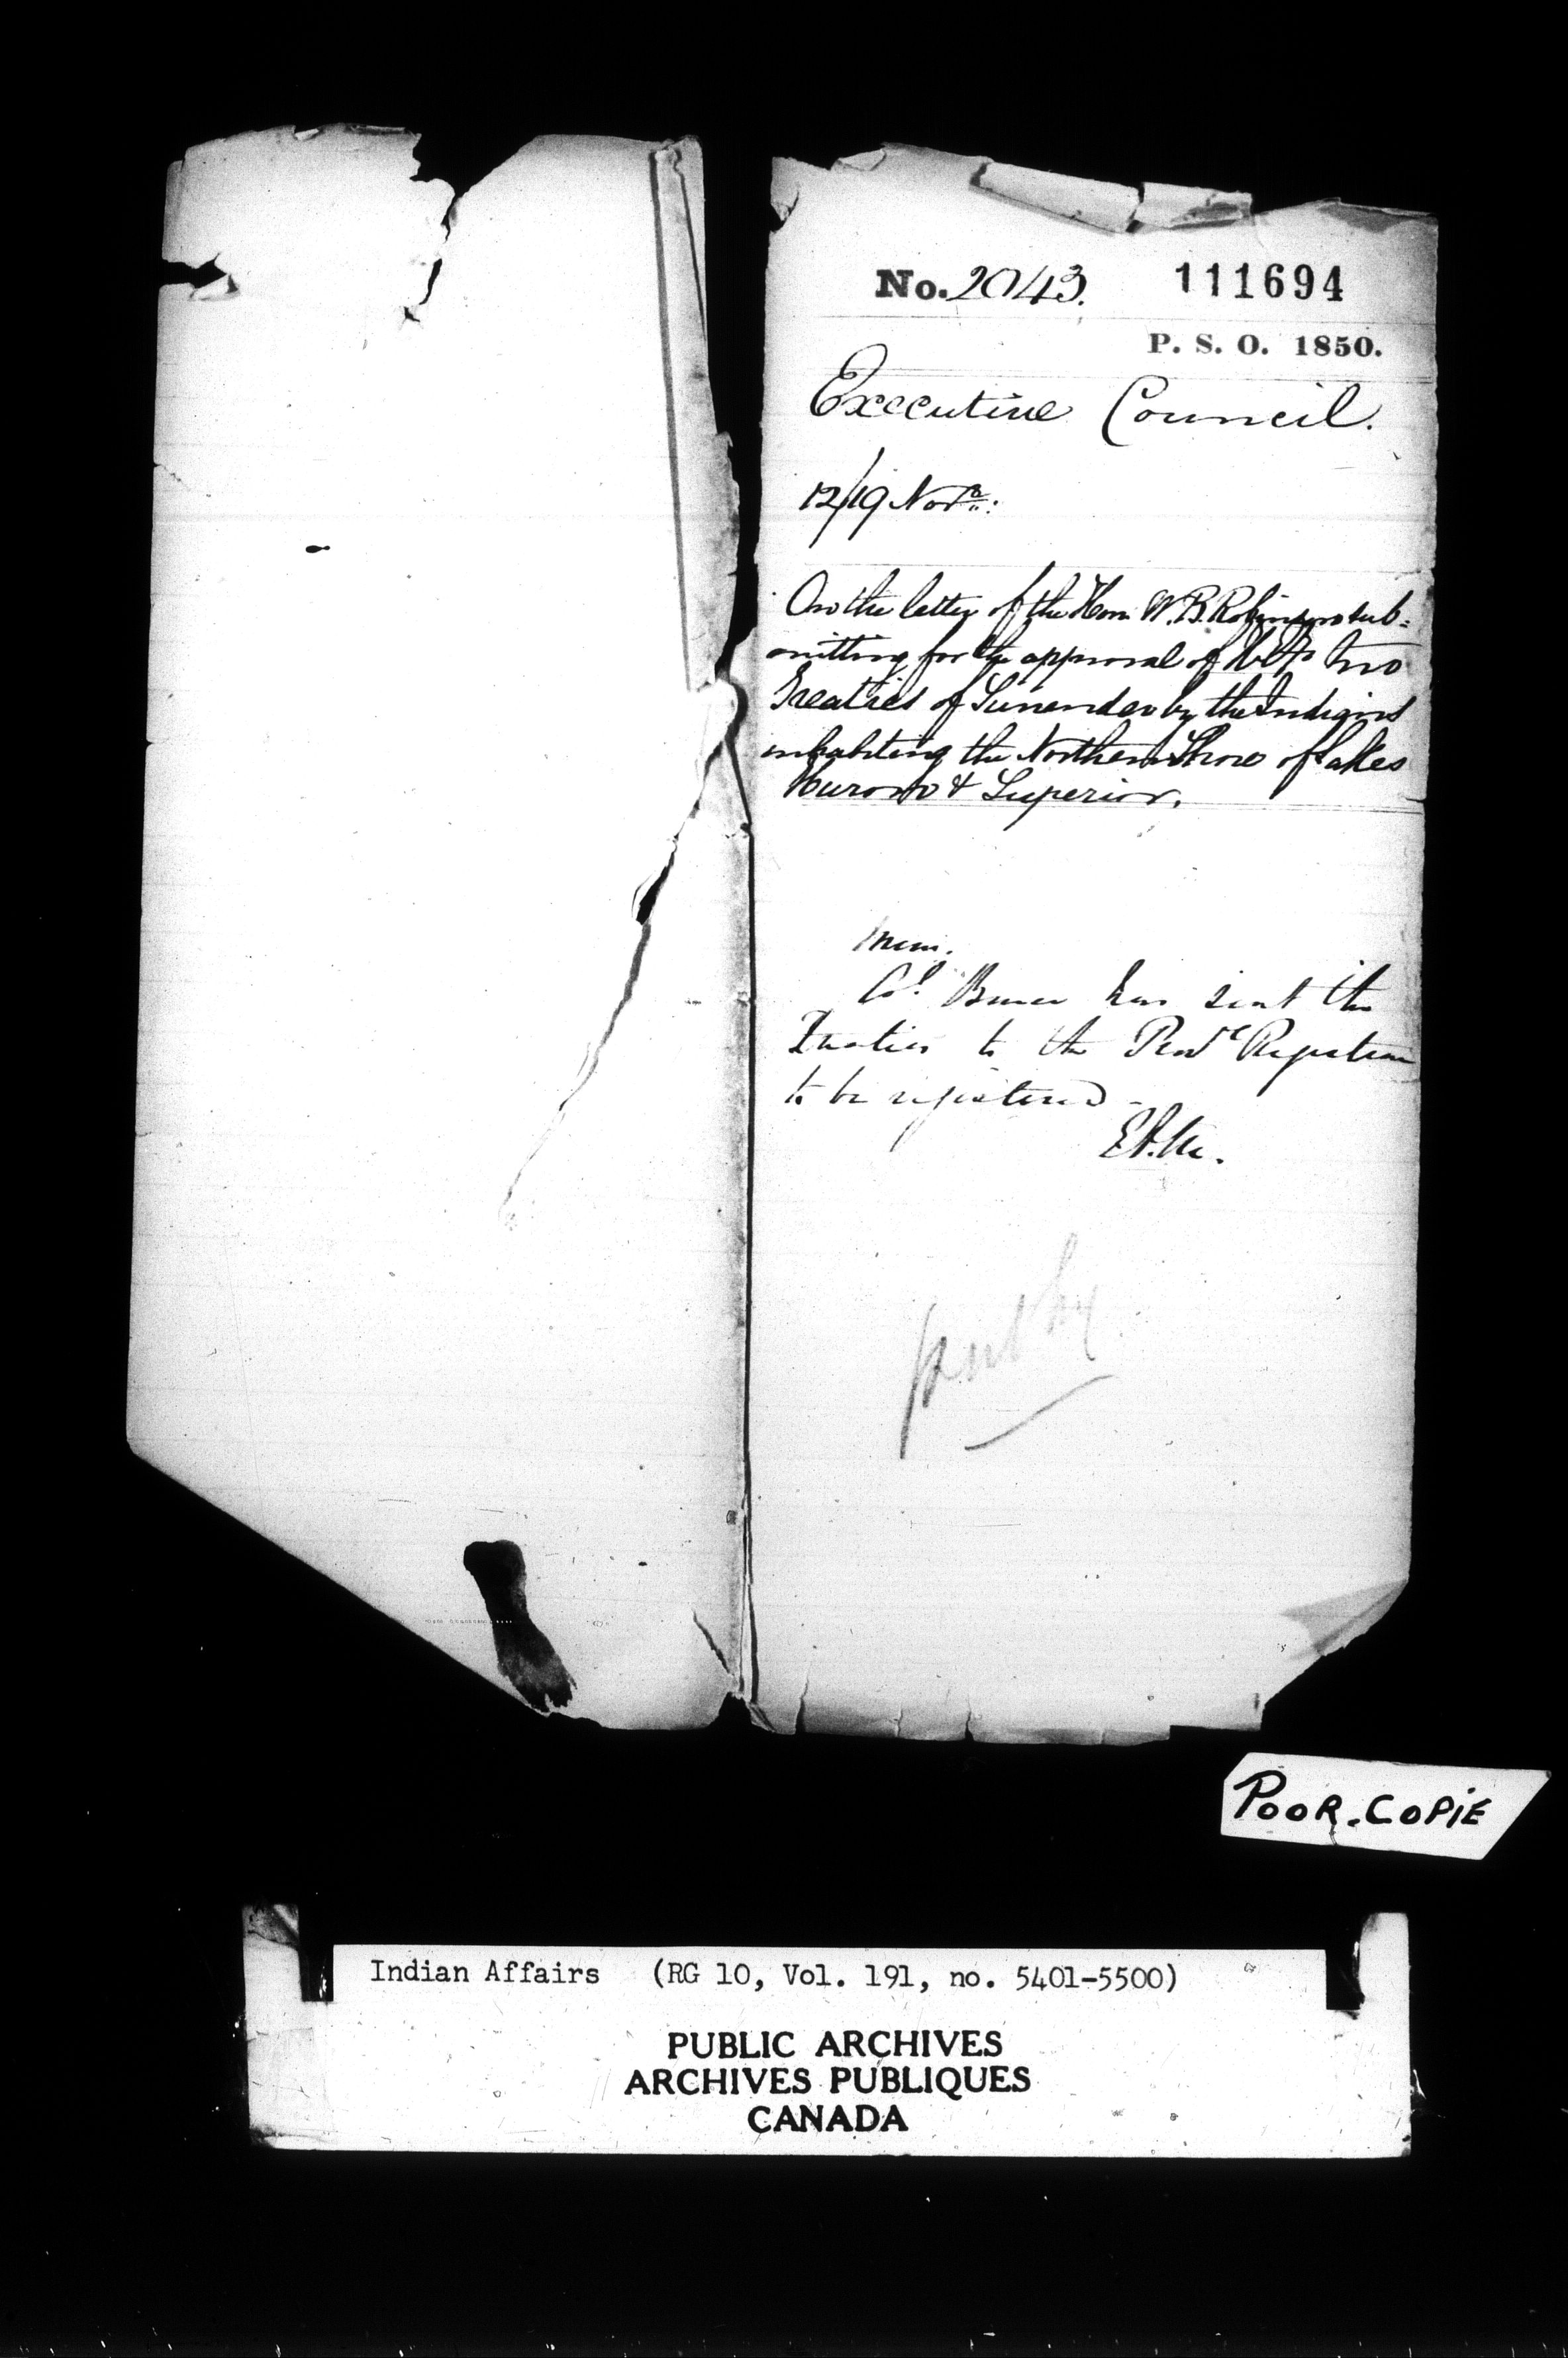 No. 2043. 111694
P. S. O. 1850.
Executive Council.
12/19 Novr:
On the letter of the Hon W. B. Robinson sub-
mitting for the approval of two
Treaties of Surrender by the Indians
inhabiting the Northern Shore of Lakes
Huron & Superior.
Mem.
Col Bruce has sent the
Treaties to the Provl Registrar
to be registered -
put by
POOR.COPIE
Indian Affairs (RG 10, Vol. 191, no. 5401-5500)
PUBLIC ARCHIVES
ARCHIVES PUBLIQUES
CANADA